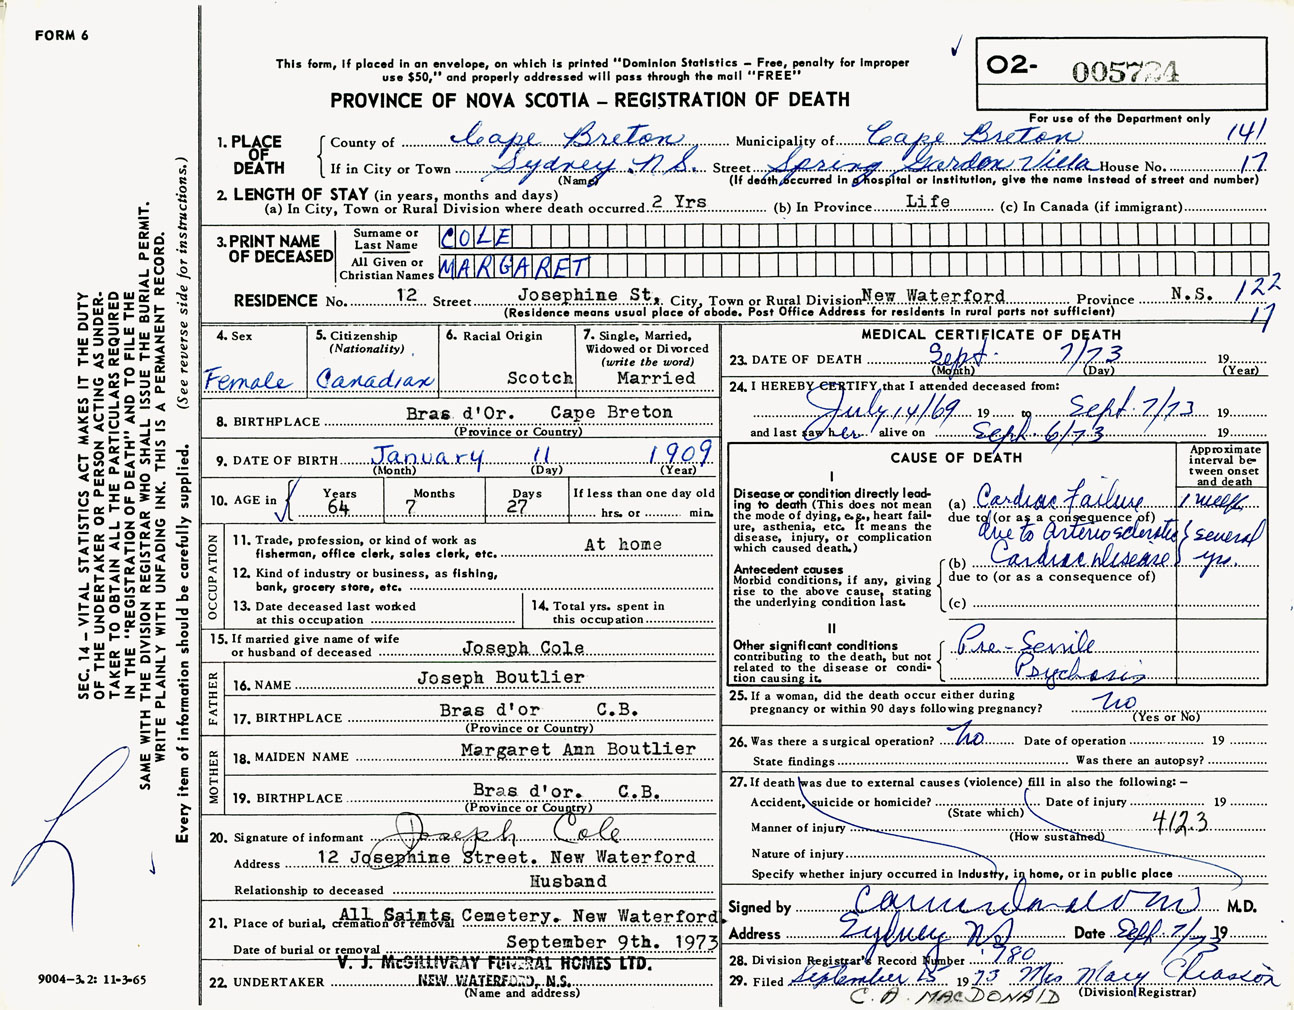 FORM 6
This form, if placed in an envelope, on which is printed "Dominion Statistics — Free, penalty for improper
use $50," and properly addressed will pass through the mail "FREE"
PROVINCE OF NOVA SCOTIA — REGISTRATION OF DEATH
O2- 005724
For use of the Department only
1. PLACE OF DEATH County of Cape Breton Municipality of Cape Breton 141
If in City or Town Sydney N.S. Street Spring Garden Villa House No. 17
(Name) (If death occurred in a hospital or institution, give the name instead of street and number)
2. LENGTH OF STAY (in years, months and days)
(a) In City, Town or Rural Division where death occurred 2 Yrs (b) In Province Life (c) In Canada (if immigrant)
3. PRINT NAME OF DECEASED
Surname or Last Name COLE
All Given or Christian Names MARGARET
RESIDENCE No. 12 Street Josephine St, City, Town or Rural Division New Waterford Province N.S. 122
(Residence means usual place of abode. Post Office Address for residents in rural parts not sufficient) 17
4. Sex Female
5. Citizenship (Nationality) Canadian
6. Racial Origin Scotch
7. Single, Married, Widowed or Divorced (write the word) Married
8. BIRTHPLACE Bras d'Or. Cape Breton
(Province or Country)
9. DATE OF BIRTH January 11 1909
(Month) (Day) (Year)
10. AGE in Years 64 Months 7 Days 27 If less than one day old hrs. or min.
OCCUPATION
11. Trade, profession, or kind of work as fisherman, office clerk, sales clerk, etc. At home
12. Kind of industry or business, as fishing, bank, grocery store, etc.
13. Date deceased last worked at this occupation
14. Total yrs. spent in this occupation
15. If married give name of wife or husband of deceased Joseph Cole
FATHER
16. NAME Joseph Boutlier
17. BIRTHPLACE Bras d'or C.B.
(Province or Country)
MOTHER
18. MAIDEN NAME Margaret Ann Boutlier
19. BIRTHPLACE Bras d'or. C.B.
(Province or Country)
20. Signature of informant Joseph Cole
Address 12 Josephine Street. New Waterford
Relationship to deceased Husband
21. Place of burial, cremation or removal All Saints Cemetery. New Waterford.
Date of burial or removal September 9th. 1973
V. J. McGILLIVRAY FUNERAL HOMES LTD.
22. UNDERTAKER NEW WATERFORD, N.S.
(Name and address)
MEDICAL CERTIFICATE OF DEATH
23. DATE OF DEATH Sept. 7/73 19
(Month) (Day) (Year)
24. I HEREBY CERTIFY, that I attended deceased from:
July 14/69 19 to Sept. 7/73 19
and last saw her alive on Sept. 6/73 19
CAUSE OF DEATH
Approximate interval between onset and death
I
Disease or condition directly leading to death (This does not mean the mode of dying, e.g., heart failure, asthenia, etc. It means the disease, injury, or complication which caused death.)
(a) Cardiac Failure 1 week
due to (or as a consequence of)
due to Arteriosclerotic several
Antecedent causes
Morbid conditions, if any, giving rise to the above cause, stating the underlying condition last.
(b) Cardiac Disease yrs.
due to (or as a consequence of)
(c)
II
Other significant conditions contributing to the death, but not related to the disease or condition causing it.
Pre-Senile
Psychosis
25. If a woman, did the death occur either during pregnancy or within 90 days following pregnancy? no
(Yes or No)
26. Was there a surgical operation? No Date of operation 19
State findings Was there an autopsy?
27. If death was due to external causes (violence) fill in also the following:—
Accident, suicide or homicide? Date of injury 19
(State which)
Manner of injury 4123
(How sustained)
Nature of injury
Specify whether injury occurred in industry, in home, or in public place
Signed by M.D.
Address Sydney NS Date Sept. 7/73 19
28. Division Registrar's Record Number 780
29. Filed September 15 1973 Mrs Mary Chiasson
C. A. MACDONALD (Division Registrar)
SEC. 14 — VITAL STATISTICS ACT MAKES IT THE DUTY
OF THE UNDERTAKER OR PERSON ACTING AS UNDER-
TAKER TO OBTAIN ALL THE PARTICULARS REQUIRED
IN THE "REGISTRATION OF DEATH" AND TO FILE THE
SAME WITH THE DIVISION REGISTRAR WHO SHALL ISSUE THE BURIAL PERMIT.
WRITE PLAINLY WITH UNFADING INK. THIS IS A PERMANENT RECORD.
Every item of information should be carefully supplied. (See reverse side for instructions.)
9004—3.2: 11-3-65